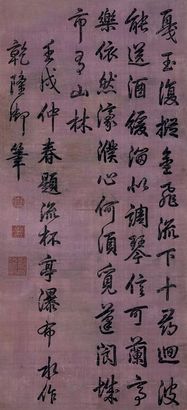 戛玉復摐金飛流下十尋迴波
能送酒緩溜似調琴信可蘭亭
樂依然濠濮心何須覓蓬閬城
市有山林
壬戌仲春題流杯亭瀑布水作
乾隆御筆